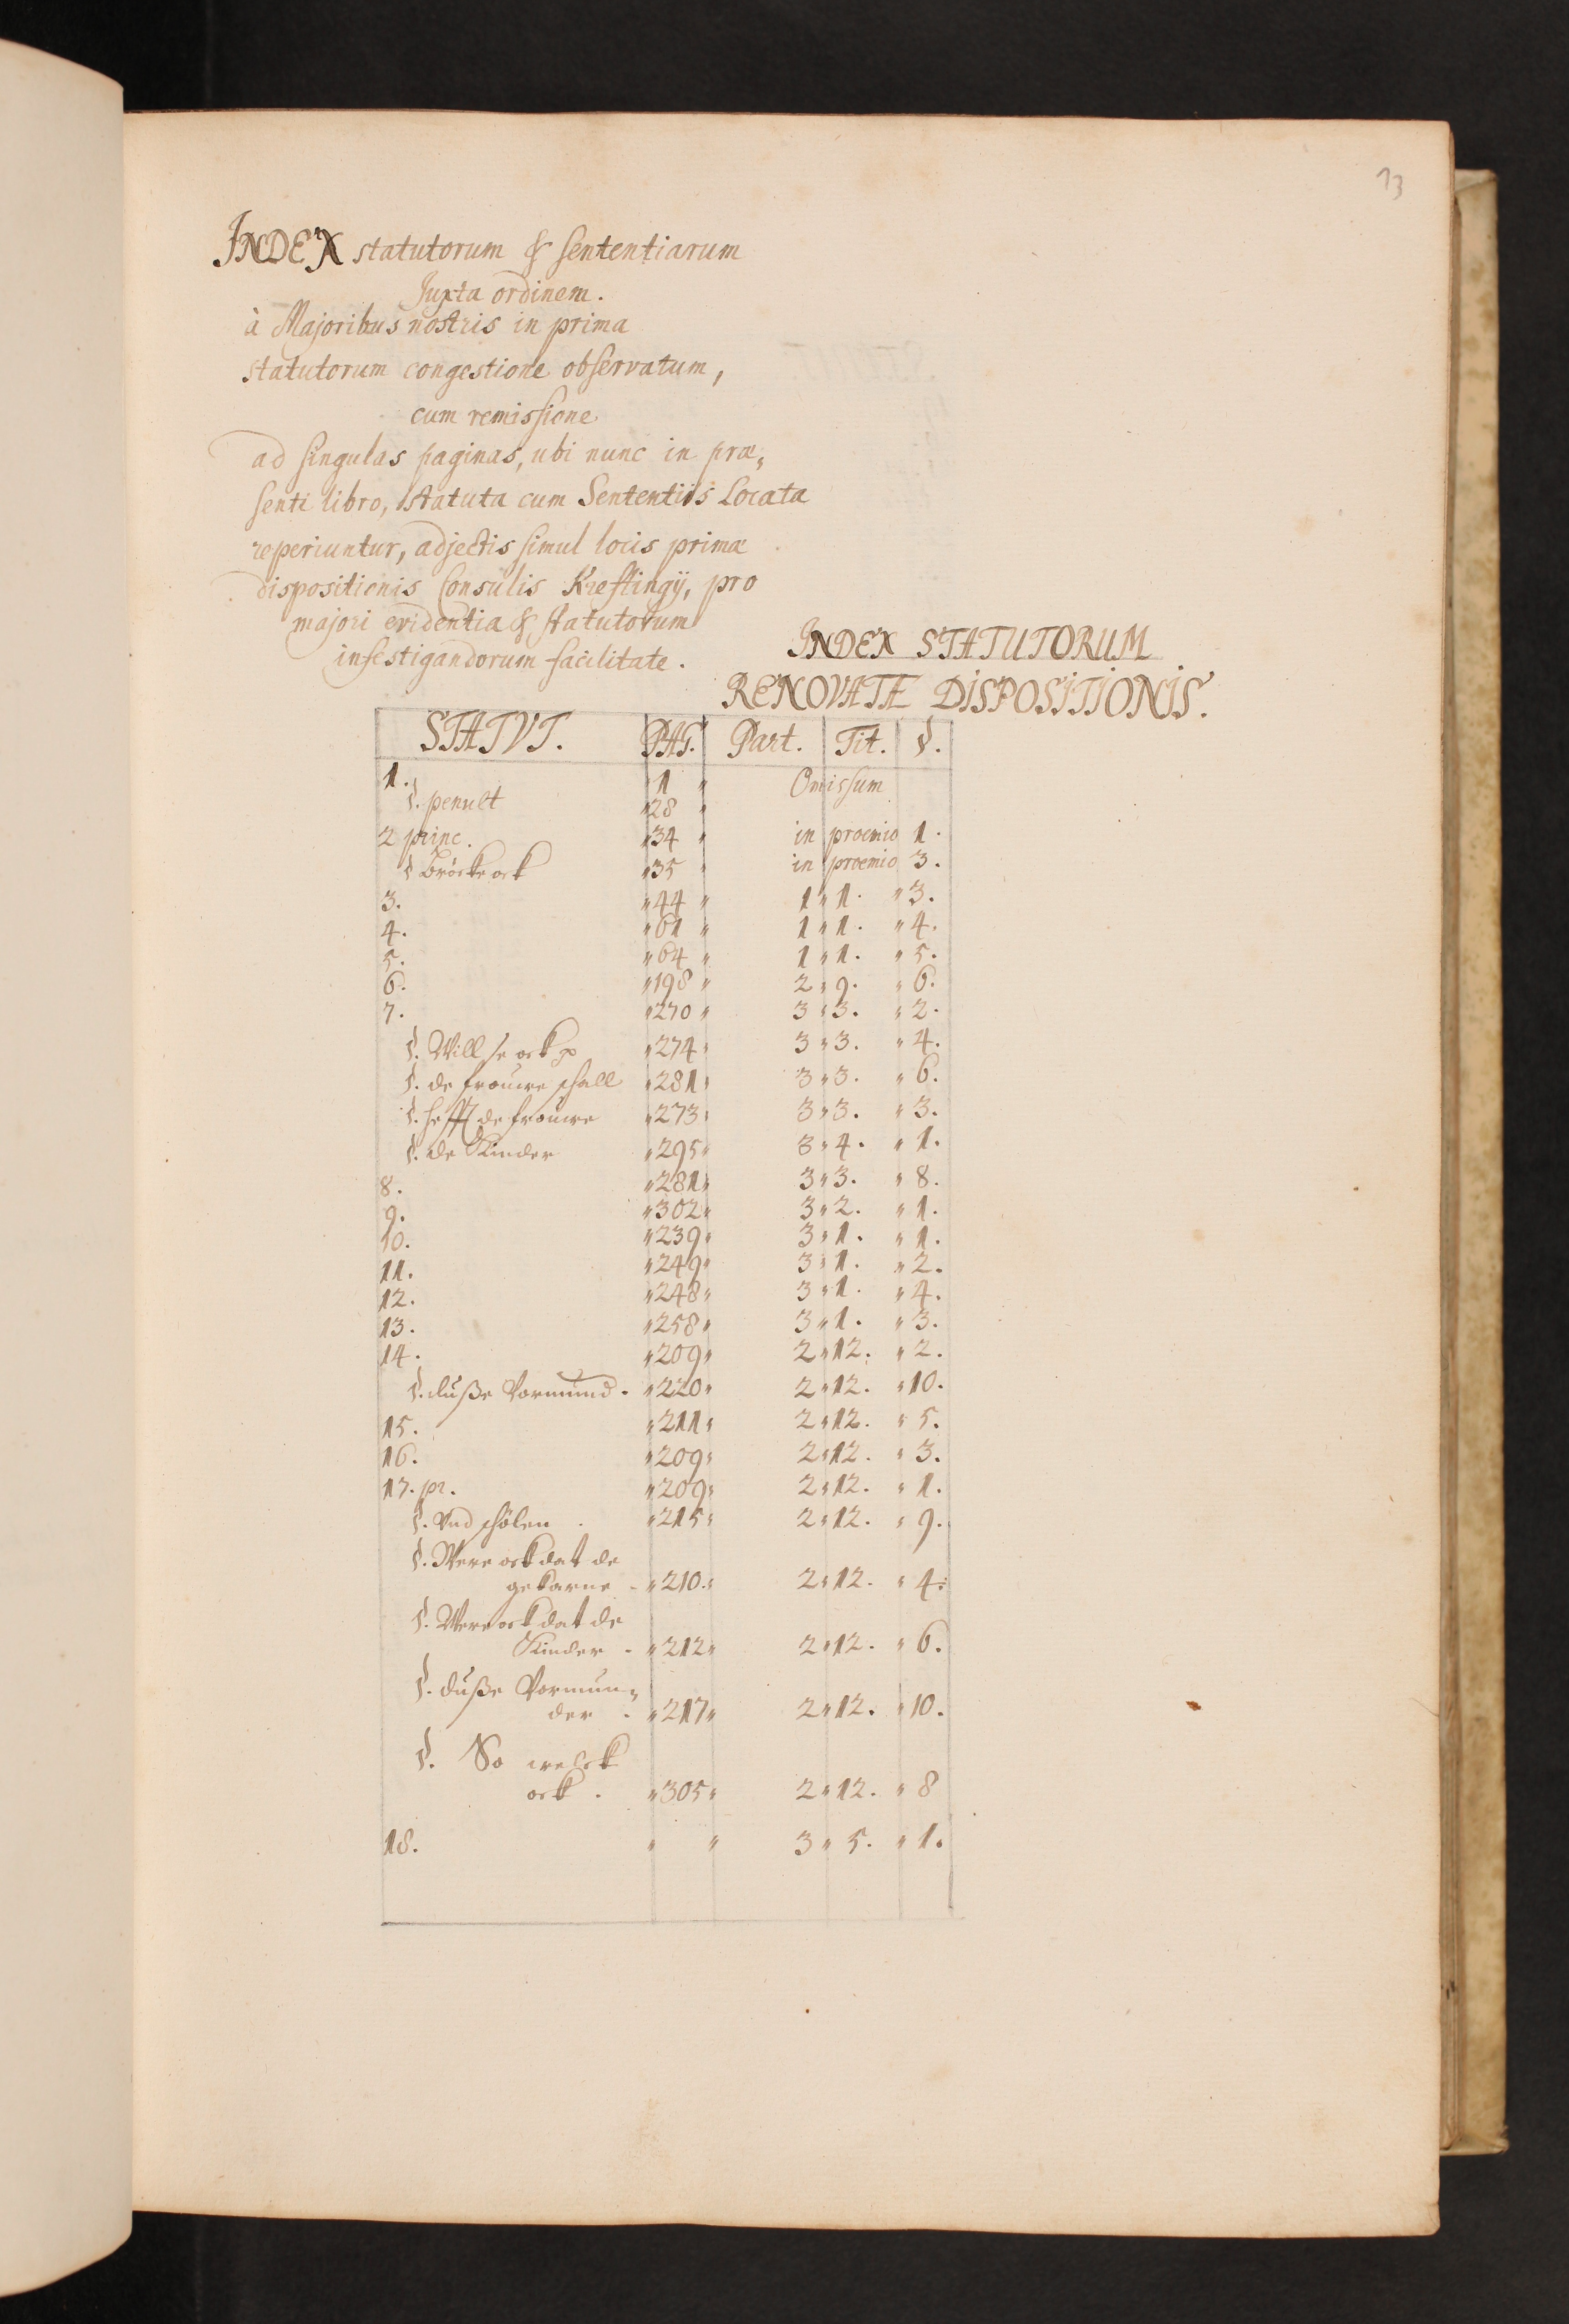 13
INDEX statutorum & sententiarum
Juxta ordinem.
à Majoribus nostris in prima
statutorum congestione observatum,
cum remissione
ad singulas paginas, ubi nunc in præ„
senti libro, statuta cum Sententiis Locata
reperiuntur, adjectis simul locis primæ
dispositionis Consulis Kreftingij, pro
majori evidentia & statutorum
infestigandorum facilitate.
INDEX STATUTORUM
RENOVATÆ DISPOSITIONIS.
STATVT. PAG. Part. Tit. §.
1. 1 " Omissum
§. penult "28 "
2 princ. "34 " in proemio 1.
§ Bröcke ock "35 " in proemio 3.
3. "44 " 1 " 1. "3.
4. "61 " 1 " 1. "4.
5. "64 " 1 " 1. "5.
6. "198 " 2 " 9. "6.
7. "270 " 3 " 3. "2.
§. Will se ock "274 " 3 " 3. "4.
§. de frouwe schall "281 " 3 " 3. "6.
§. hefft de frouwe "273 " 3 " 3. "3.
§. de Kinder "295 " 3 " 4. "1.
8. "281 " 3 " 3. "8.
9. "302 " 3 " 2. "1.
10. "239 " 3 " 1. "1.
11. "249 " 3 " 1. "2.
12. "248 " 3 " 1. "4.
13. "258 " 3 " 1. "3.
14. "209 " 2 " 12. "2.
§. duße Vormund. "220 " 2 " 12. "10.
15. "211 " 2 " 12. "5.
16. "209 " 2 " 12. "3.
17. pr. "209 " 2 " 12. "1.
§. Vnd schölen. "215 " 2 " 12. "9.
§. Were ock dat de
gekarne - "210. " 2 " 12. "4.
§. Were ock dat de
Kinder - "212 " 2 " 12. "6.
§. duße Vormun„
der. "217 " 2 " 12. "10.
§. So welck
ock. "305 " 2 " 12. "8
18. " " 3 " 5. "1.